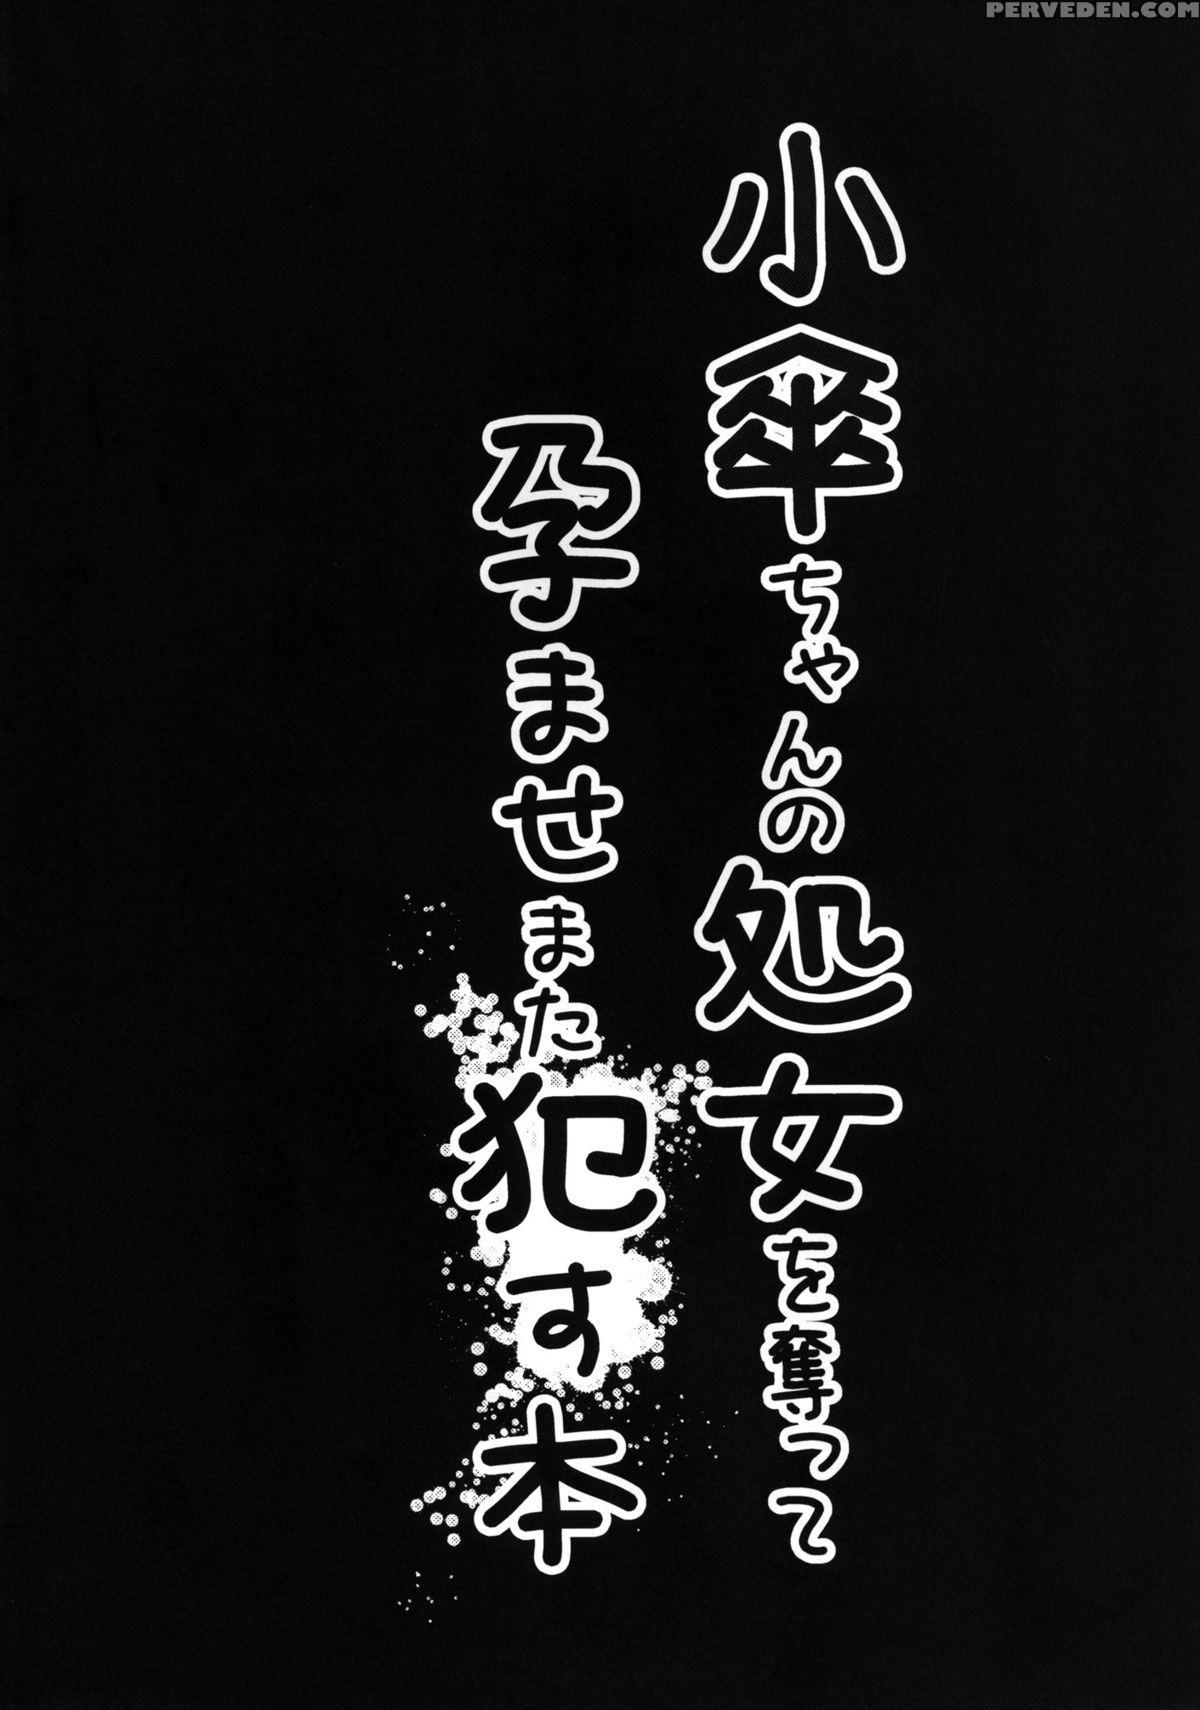 PERVEDEN.COM
小傘ちゃんの処女を奪って
孕ませまた犯す本